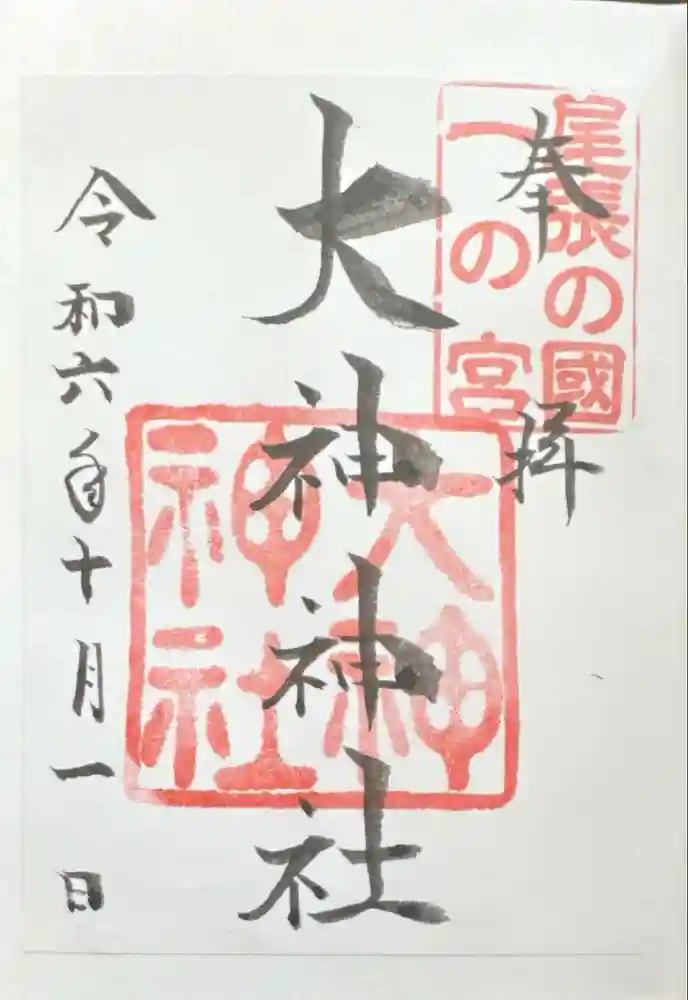 奉拝
尾張の國
一の宮
大神神社
大神
神社
令和六年十月一日